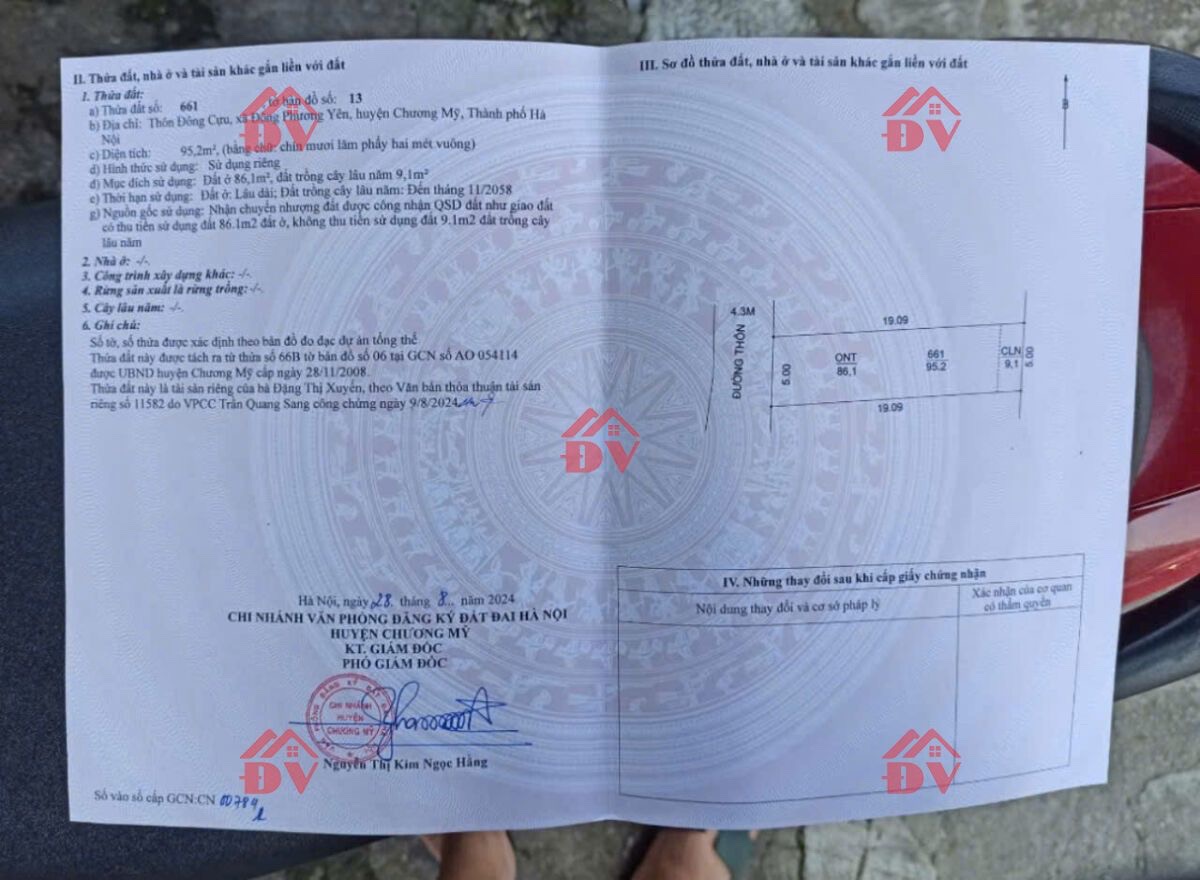 II. Thửa đất, nhà ở và tài sản khác gắn liền với đất
1. Thửa đất:
a) Thửa đất số: 661 tờ bản đồ số: 13
b) Địa chỉ: Thôn Đông Cựu, xã Đông Phương Yên, huyện Chương Mỹ, Thành phố Hà
Nội
c) Diện tích: 95,2m², (bằng chữ: chín mươi lăm phẩy hai mét vuông)
d) Hình thức sử dụng: Sử dụng riêng
đ) Mục đích sử dụng: Đất ở 86,1m², đất trồng cây lâu năm 9,1m²
e) Thời hạn sử dụng: Đất ở: Lâu dài; Đất trồng cây lâu năm: Đến tháng 11/2058
g) Nguồn gốc sử dụng: Nhận chuyển nhượng đất được công nhận QSD đất như giao đất
có thu tiền sử dụng đất 86.1m2 đất ở, không thu tiền sử dụng đất 9.1m2 đất trồng cây
lâu năm
2. Nhà ở: -/-.
3. Công trình xây dựng khác: -/-.
4. Rừng sản xuất là rừng trồng: -/-.
5. Cây lâu năm: -/-.
6. Ghi chú:
Số tờ, số thửa được xác định theo bản đồ đo đạc dự án tổng thể
Thửa đất này được tách ra từ thửa số 66B tờ bản đồ số 06 tại GCN số AO 054114
được UBND huyện Chương Mỹ cấp ngày 28/11/2008.
Thửa đất này là tài sản riêng của bà Đặng Thị Xuyến, theo Văn bản thỏa thuận tài sản
riêng số 11582 do VPCC Trần Quang Sang công chứng ngày 9/8/2024
Hà Nội, ngày 28 tháng 8 năm 2024
CHI NHÁNH VĂN PHÒNG ĐĂNG KÝ ĐẤT ĐAI HÀ NỘI
HUYỆN CHƯƠNG MỸ
KT. GIÁM ĐỐC
PHÓ GIÁM ĐỐC
CHI NHÁNH
HUYỆN
CHƯƠNG MỸ
Nguyễn Thị Kim Ngọc Hằng
Số vào sổ cấp GCN:CN 00784
III. Sơ đồ thửa đất, nhà ở và tài sản khác gắn liền với đất
B
4.3M
ĐƯỜNG THÔN
19.09
5.00
ONT
86,1
661
95.2
CLN
9,1
5.00
19.09
IV. Những thay đổi sau khi cấp giấy chứng nhận
Nội dung thay đổi và cơ sở pháp lý
Xác nhận của cơ quan
có thẩm quyền
ĐV
ĐV
ĐV
ĐV
ĐV